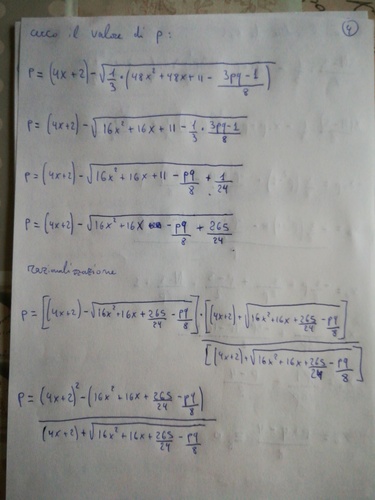 cerco il valore di p: 4
p = (4x+2) - √(1/3 · (48x² + 48x + 11 - (3pq-1)/8))
p = (4x+2) - √(16x² + 16x + 11 - 1/3 · (3pq-1)/8)
p = (4x+2) - √(16x² + 16x + 11 - pq/8 + 1/24)
p = (4x+2) - √(16x² + 16x - pq/8 + 265/24)
razionalizzazione
p = [(4x+2) - √(16x² + 16x + 265/24 - pq/8)] · [(4x+2) + √(16x² + 16x + 265/24 - pq/8)] / [(4x+2) + √(16x² + 16x + 265/24 - pq/8)]
p = ((4x+2)² - (16x² + 16x + 265/24 - pq/8)) / ((4x+2) + √(16x² + 16x + 265/24 - pq/8))